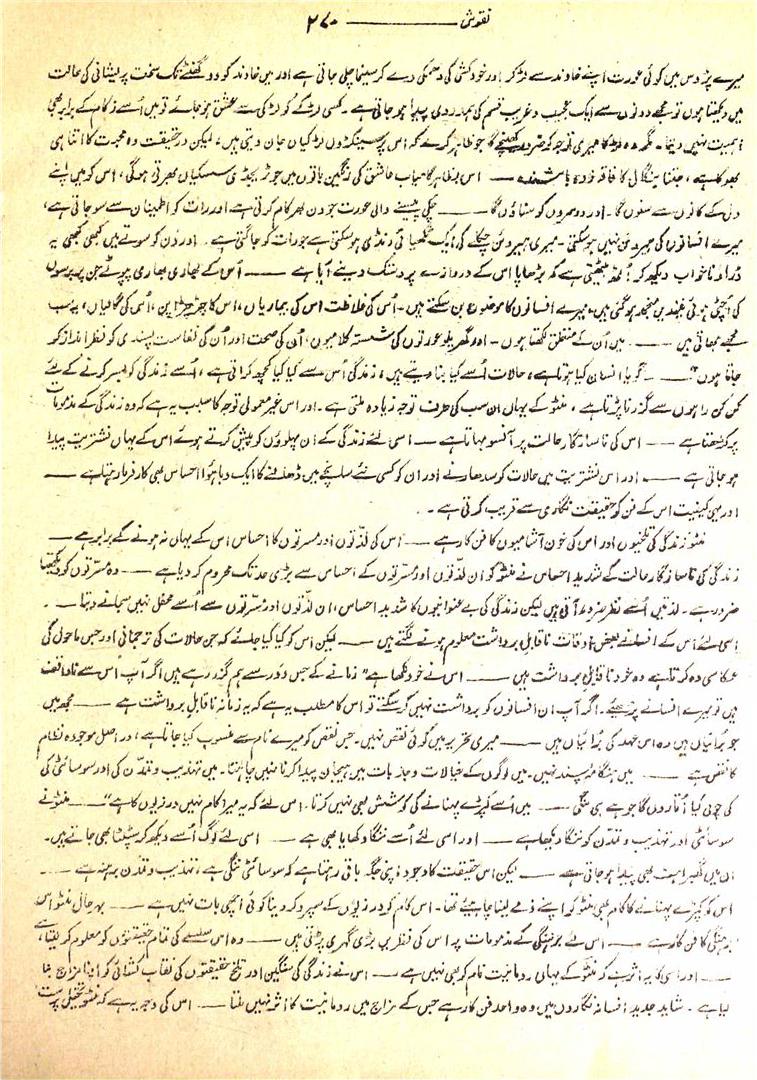 نقوش ــــــــــ ۲۷۰
میرے پڑوس میں کوئی عورت اپنے خاوند سے لڑ کر اور خودکشی کی دھمکی دے کر سینما چلی جاتی ہے اور میں خاوند کو دو گھنٹے تک سخت پریشانی کی حالت
میں دیکھتا ہوں تو مجھے دونوں سے ایک عجیب و غریب قسم کی ہمدردی پیدا ہو جاتی ہے ۔ کسی لڑکے کو لڑکی سے عشق ہو جائے تو میں اُسے زکام کے برابر بھی
اہمیت نہیں دیتا ۔ مگر وہ لڑکا میری توجہ کو ضرور کھینچے گا جو ظاہر کرے کہ اس پر سینکڑوں لڑکیاں جان دیتی ہیں ، لیکن درحقیقت وہ محبت کا اتنا ہی
بھوکا ہے ، جتنا بنگال کا فاقہ زدہ باشندہ ـــ اس بظاہر کامیاب عاشق کی رنگین باتوں میں جو ٹریجڈی سسکیاں بھرتی ہوگی ، اس کو میں اپنے
دل کے کانوں سے سنوں گا ۔ اور دوسروں کو سناؤں گا ـــ چکی پیسنے والی عورت جو دن بھر کام کرتی ہے اور رات کو اطمینان سے سو جاتی ہے ،
میرے افسانوں کی ہیروئن نہیں ہو سکتی ۔ میری ہیروئن چکلے کی ایک ٹکھیائی رنڈی ہو سکتی ہے جو رات کو جاگتی ہے ۔ اور دن کو سوتے میں کبھی کبھی یہ
ڈراؤنا خواب دیکھ کر اُٹھ بیٹھتی ہے کہ بڑھاپا اس کے دروازے پر دستک دینے آیا ہے ـــ اُس کے بھاری بھاری پپوٹے جن پر برسوں
کی اُچٹی ہوئی نیندیں منجمد ہو گئی ہیں ، میرے افسانوں کا موضوع بن سکتے ہیں ۔ اُس کی غلاظت اس کی بیماریاں ، اس کا چڑچڑاپن ، اُس کی گالیاں ، یہ سب
مجھے بھاتی ہیں ـــ میں اُن کے متعلق لکھتا ہوں ۔ اور گھریلو عورتوں کی شستہ کلامیوں ، اُن کی صحت اور اُن کی نفاست پسندی کو نظر انداز کر
جاتا ہوں" ـــ گویا انسان کیا ہوتا ہے ، حالات اُسے کیا بنا دیتے ہیں ، زندگی اُس سے کیا کیا کچھ کراتی ہے ، اُسے زندگی کو بسر کرنے کے لئے
کن کن راہوں سے گزرنا پڑتا ہے ، منٹو کے یہاں ان سب کی طرف توجہ زیادہ ملتی ہے ۔ اور اس غیر معمولی توجہ کا مطلب یہ ہے کہ وہ زندگی کے مذمومات
پر کڑھتا ہے ـــ اس کی ناسازگار حالت پر آنسو بہاتا ہے ـــ اسی لئے زندگی کے ان پہلوؤں کو پیش کرتے ہوئے اس کے یہاں نشتریت پیدا
ہو جاتی ہے ـــ اور اس نشتریت میں حالات کو سدھارنے اور ان کو کسی نئے سانچے میں ڈھالنے کا ایک دبا ہوا احساس بھی کارفرما رہتا ہے ـــ
اور یہی کیفیت اس کے فن کو حقیقت نگاری سے قریب کرتی ہے ۔
منٹو زندگی کی تلخیوں اور اس کی خون آشامیوں کا فن کار ہے ـــ اُس کی لذتوں اور مسرتوں کا احساس اس کے یہاں نہ ہونے کے برابر ہے ـــ
زندگی کی ناسازگار حالت کے شدید احساس نے منٹو کو ان لذتوں اور مسرتوں کے احساس سے بڑی حد تک محروم کر دیا ہے ـــ وہ مسرتوں کو دیکھتا
ضرور ہے ۔ لذتیں اُسے نظر ضرور آتی ہیں لیکن زندگی کی بے عنوانیوں کا شدید احساس ، ان لذتوں اور مسرتوں سے اُسے محفل نہیں سجانے دیتا ۔
اسی لئے اس کے افسانے بعض اوقات ناقابل برداشت معلوم ہونے لگتے ہیں ـــ لیکن اس کو کیا کیا جائے کہ جن حالات کی ترجمانی اور جس ماحول کی
عکاسی وہ کرتا ہے وہ خود ناقابل برداشت ہیں ـــ اس نے خود لکھا ہے " زمانے کے جس دَور سے ہم گزر رہے ہیں اگر آپ اُس سے ناواقف
ہیں تو میرے افسانے پڑھیے ۔ اگر آپ ان افسانوں کو برداشت نہیں کر سکتے تو اس کا مطلب یہ ہے کہ یہ زمانہ ناقابل برداشت ہے ـــ مجھ میں
جو برائیاں ہیں وہ اس عہد کی برائیاں ہیں ـــ میری تحریر میں کوئی نقص نہیں ۔ جس نقص کو میرے نام سے منسوب کیا جاتا ہے ، دراصل موجودہ نظام
کا نقص ہے ـــ میں ہنگامہ پسند نہیں ۔ میں لوگوں کے خیالات و جذبات میں ہیجان پیدا کرنا نہیں چاہتا ۔ میں تہذیب و تمدن کی اور سوسائٹی کی
کی چولی کیا اُتاروں گا جو ہے ہی ننگی ـــ میں اُسے کپڑے پہنانے کی کوشش بھی نہیں کرتا ۔ اس لئے کہ یہ میرا کام نہیں درزیوں کا ہے" ـــ منٹو نے
سوسائٹی اور تہذیب و تمدن کو ننگا دیکھا ہے ـــ اور اسی لئے اُسے ننگا دکھایا بھی ہے ـــ اسی لئے لوگ اُسے دیکھ کر سٹپٹا بھی جاتے ہیں ۔
ان میں گھبراہٹ بھی پیدا ہو جاتی ہے ـــ لیکن اس حقیقت کا وجود اپنی جگہ باقی رہتا ہے کہ سوسائٹی ننگی ہے ، تہذیب و تمدن برہنہ ہے ـــ
اس کو کپڑے پہنانے کا کام بھی منٹو کو اپنے ذمے لینا چاہیئے تھا ۔ اس کام کو درزیوں کے سپرد کر دینا کوئی اچھی بات نہیں ہے ـــ بہرحال منٹو اس
برہنگی کا فن کار ہے ـــ اس لئے برہنگی کے مذمومات پر اس کی نظریں بڑی گہری پڑتی ہیں ـــ وہ اس سلسلے کی تمام حقیقتوں کو معلوم کر لیتا ہے
ـــ اور اسی کا یہ اثر ہے کہ منٹو کے یہاں رومانیت نام کو بھی نہیں ہے ـــ اس نے زندگی کی سنگین اور تلخ حقیقتوں کی نقاب کشائی کو اپنا مزاج بنا
لیا ہے ۔ شاید جدید افسانہ نگاروں میں وہ واحد فن کار ہے جس کے مزاج میں رومانیت کا اثر نہیں ملتا ـــ اس کی وجہ یہ ہے کہ منٹو تخیل پرست